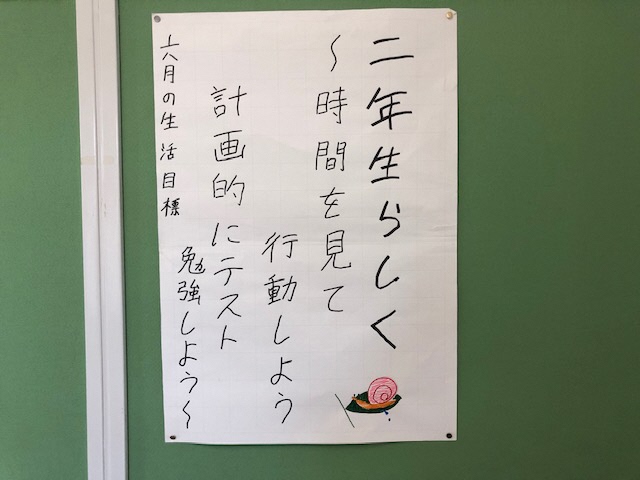 二年生らしく
～時間を見て
行動しよう
計画的にテスト
勉強しよう～
六月の生活目標